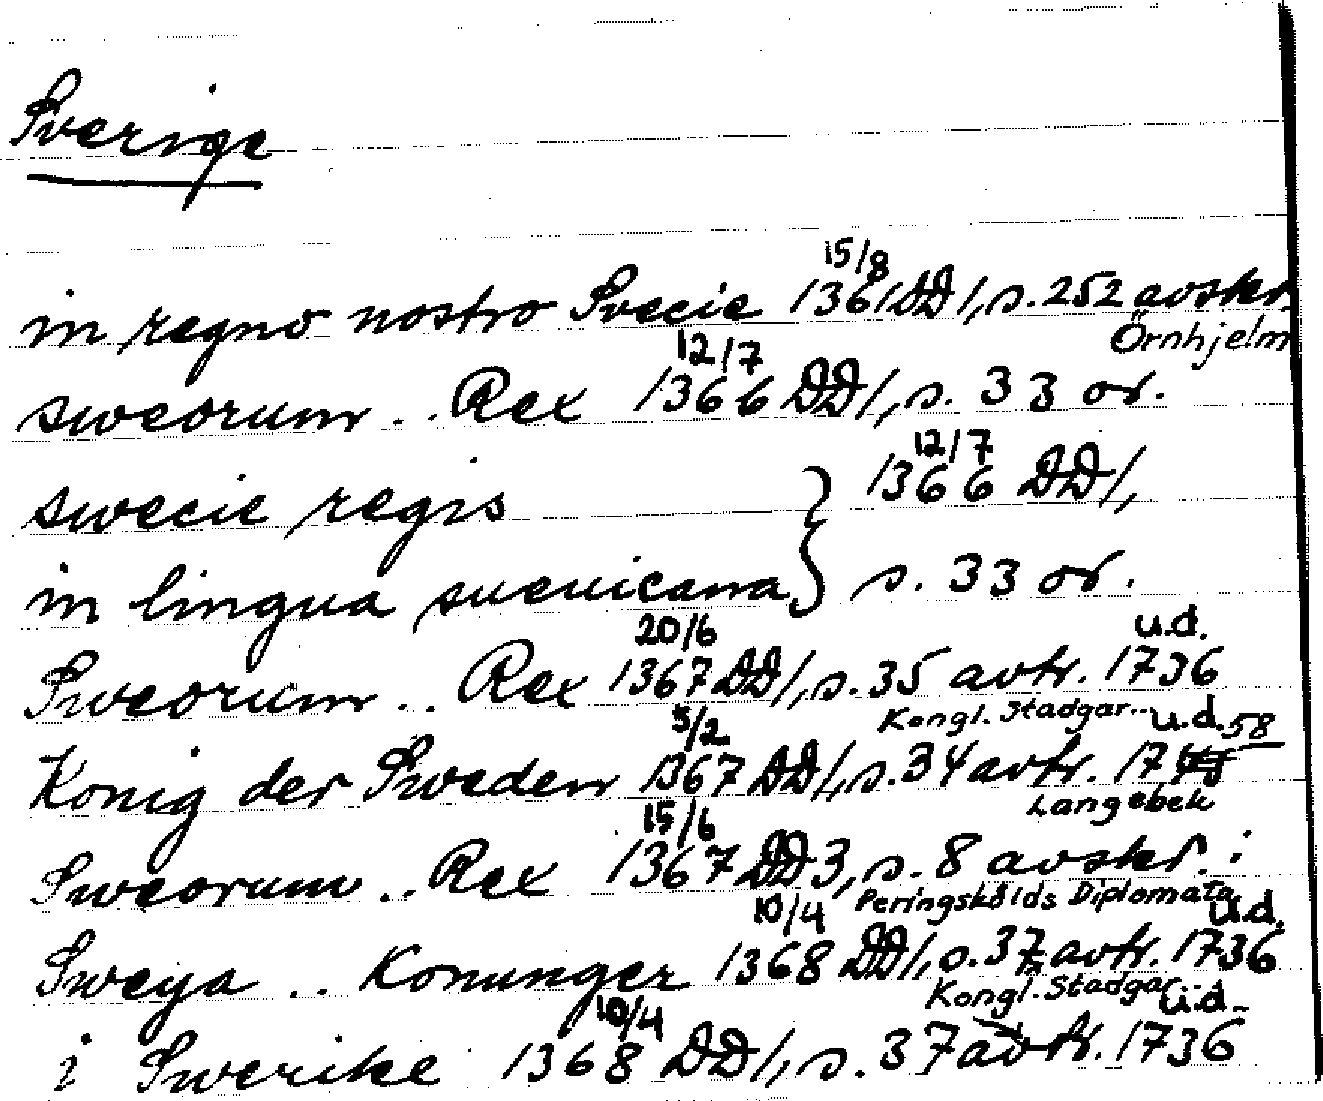 Sverige
15/8
in regno nostro Svecie 1361 DD 1, s. 252 avskr.
Örnhjelm
12/7
sweorum .. Rex 1366 DD 1, s. 33 or.
12/7
swecie regis } 1366 DD 1,
in lingua sueuicana } s. 33 or.
20/6 u.d.
Sweorum .. Rex 1367 DD 1, s. 35 avtr. 1736
Kongl. Stadgar...
5/2 u.d. 58
Konig der Sweden 1367 DD 1, s. 34 avtr. 17
Langebek
15/6
Sweorum .. Rex 1367 DD 3, s. 8 avskr. i
Peringskölds Diplomata
10/4 u.d.
Sweya .. Konunger 1368 DD 1, s. 37 avtr. 1736
Kongl. Stadgar...
10/4 u.d.
i Swerike 1368 DD 1, s. 37 avtr. 1736